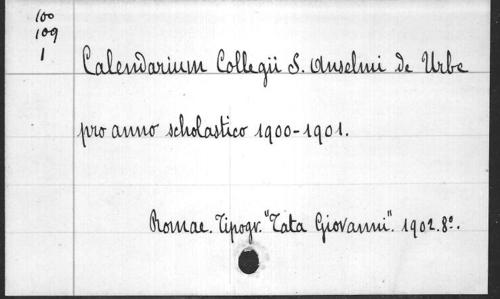 100
109
1
Calendarium Collegii S. Anselmi de Urbe
pro anno scholastico 1900-1901.
Romae. Tipogr. "Tata Giovanni". 1902. 8º.